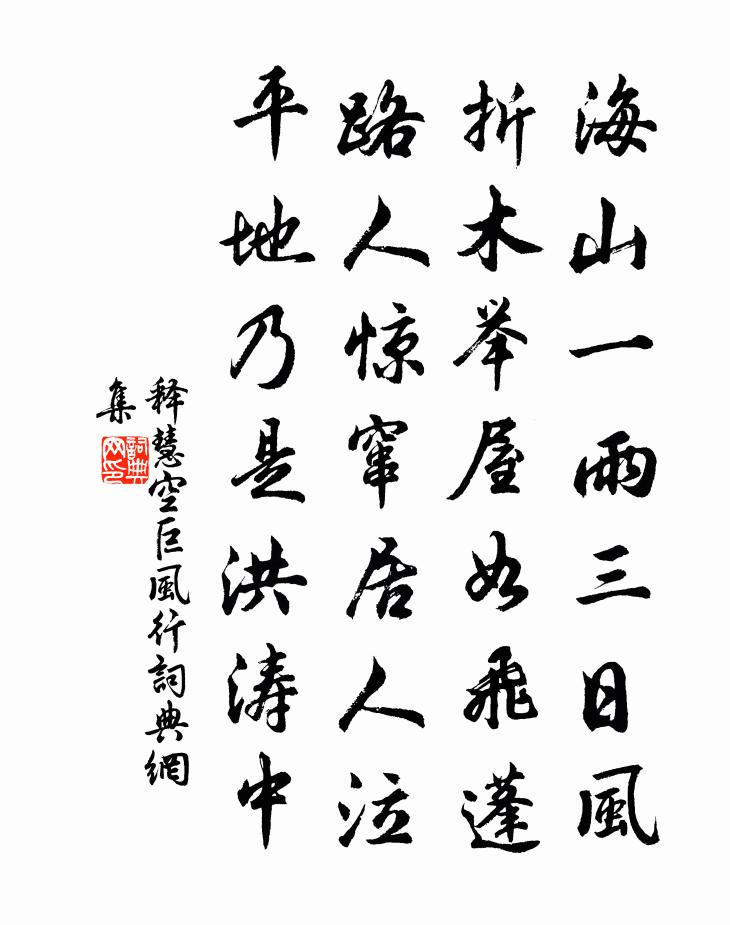 海山一雨三日風
折木举屋如飛蓬
路人惊窜居人泣
平地乃是洪涛中
释慧空巨風行詞典網
集
詞典
网印